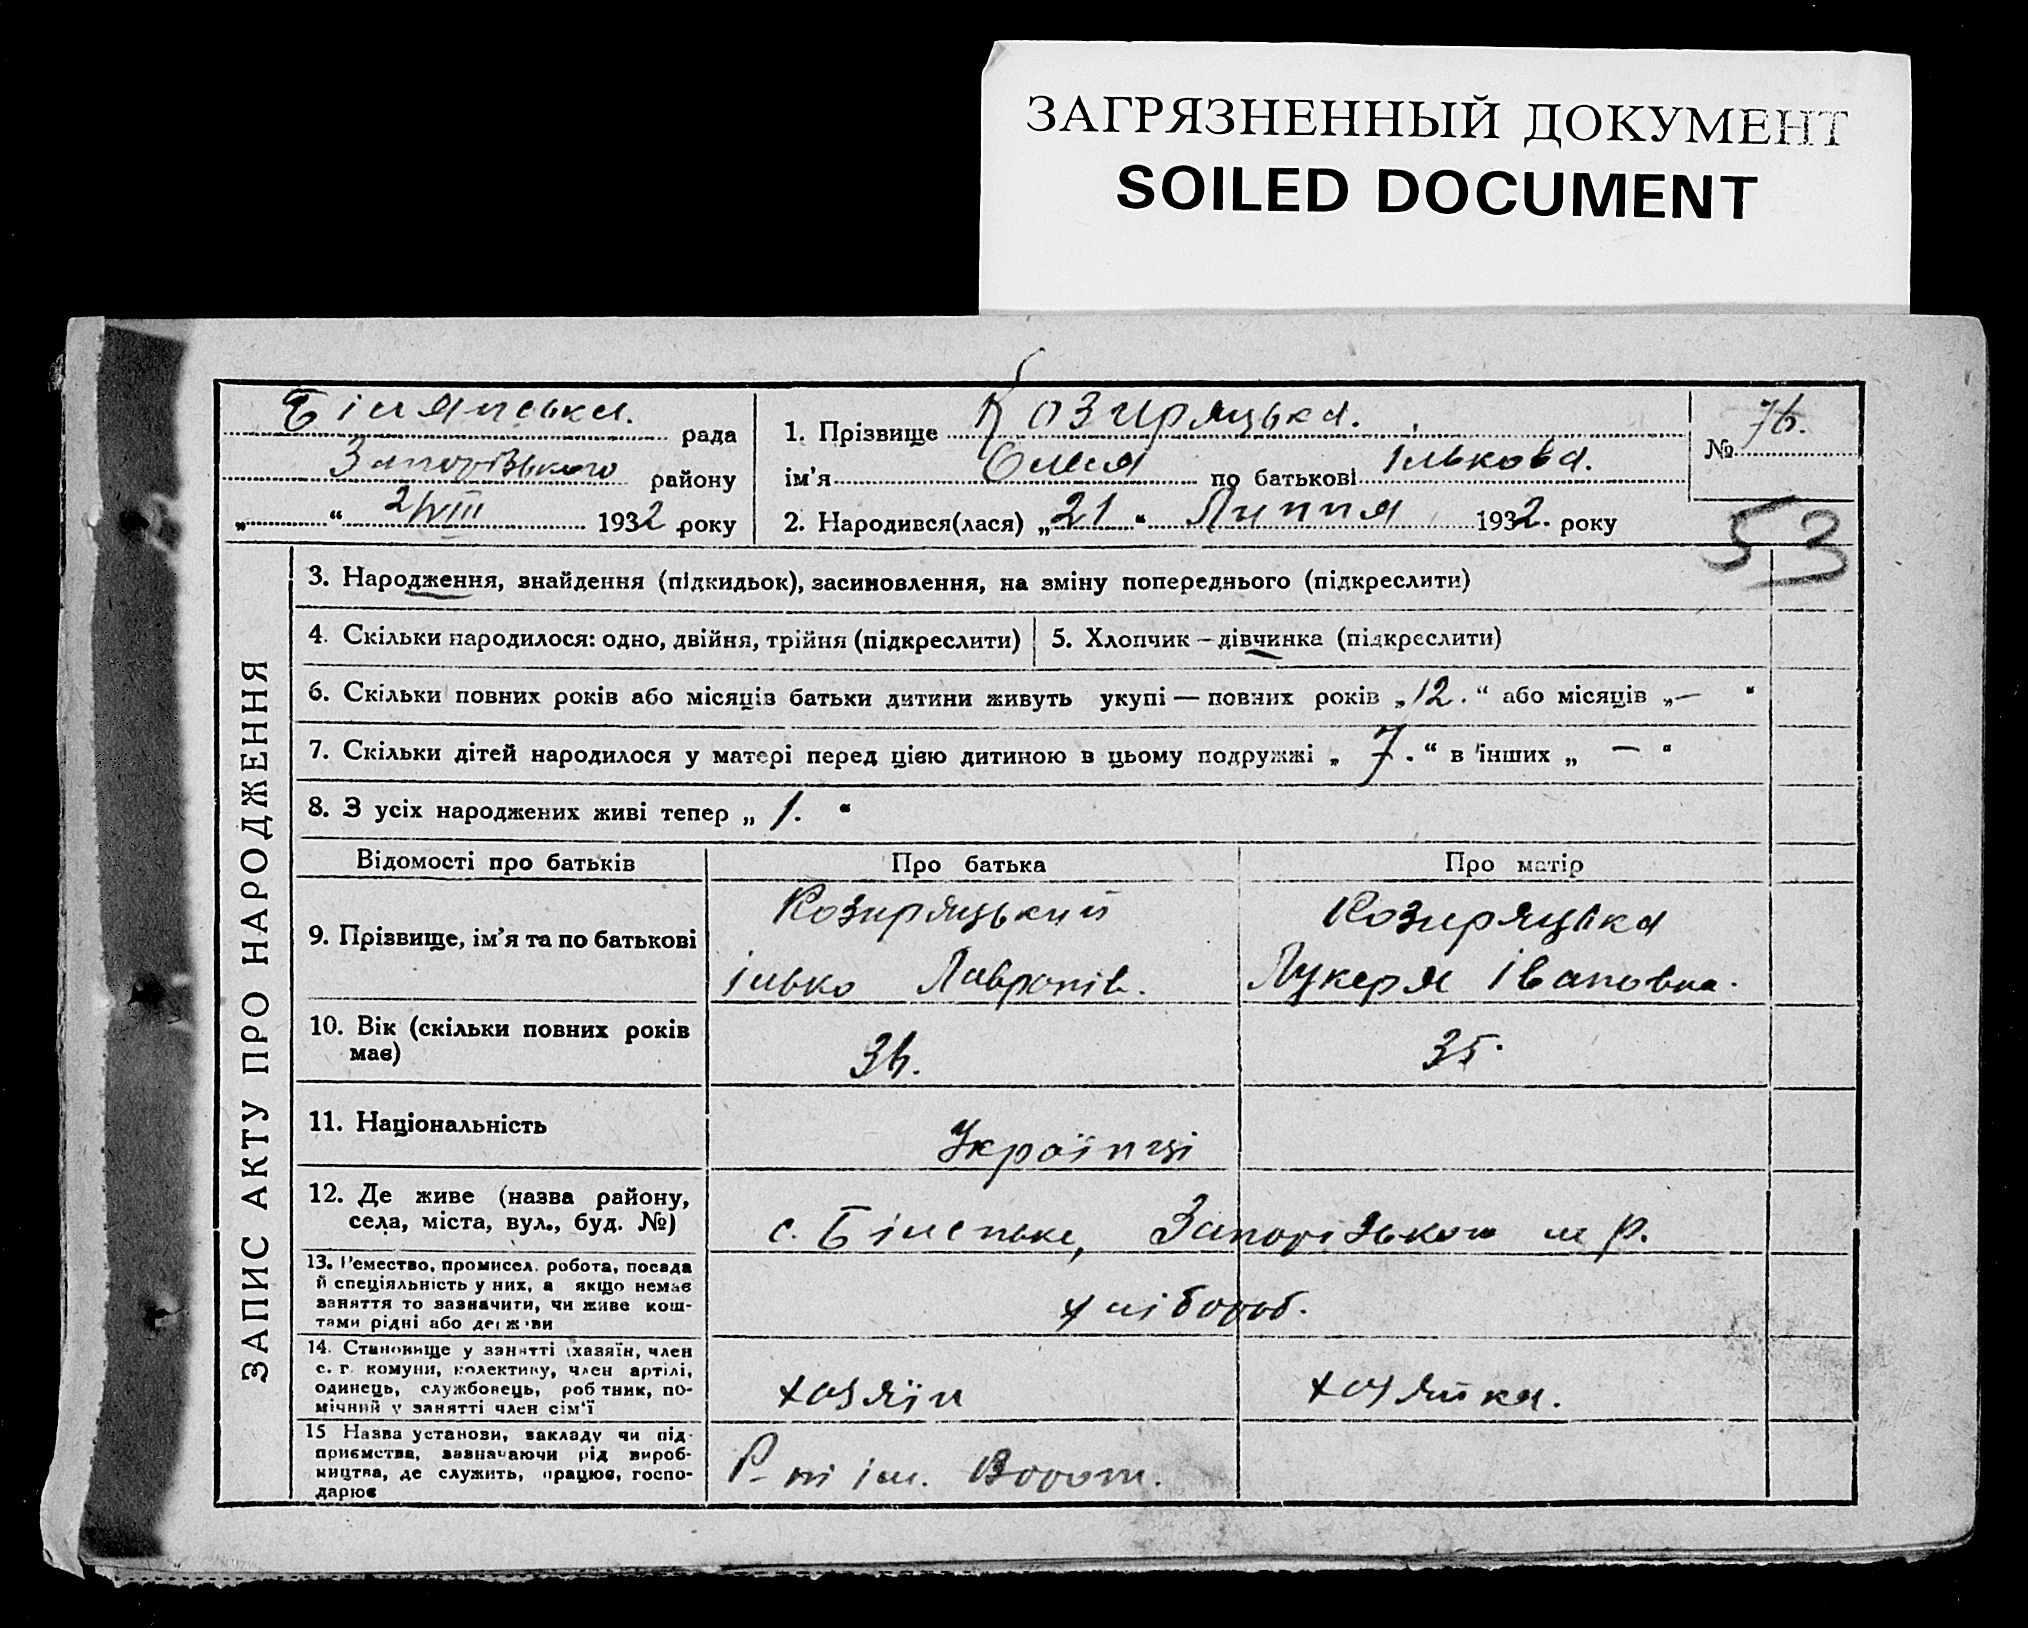 ЗАГРЯЗНЕННЫЙ ДОКУМЕНТ
SOILED DOCUMENT
Білянська. рада
Запорізького району
„ “ 2/VIII 1932 року
1. Прізвище Козиряцька.
ім’я Олена по батькові Ількова.
2. Народився(лася) „21“ Липня 1932. року
№ 76.
53
ЗАПИС АКТУ ПРО НАРОДЖЕННЯ
3. Народження, знайдення (підкидьок), засиновлення, на зміну попереднього (підкреслити)
4. Скільки народилося: одно, двійня, трійня (підкреслити)
5. Хлопчик – дівчинка (підкреслити)
6. Скільки повних років або місяців батьки дитини живуть укупі — повних років „12.“ або місяців „—“
7. Скільки дітей народилося у матері перед цією дитиною в цьому подружжі „7.“ в інших „—“
8. З усіх народжених живі тепер „1.“
Відомості про батьків
Про батька
Про матір
9. Прізвище, ім’я та по батькові
Козиряцький
Ілько Лавронів.
Козиряцька
Лукеря Івановна.
10. Вік (скільки повних років
має)
36.
35.
11. Національність
Українці
12. Де живе (назва району,
села, міста, вул., буд. №)
с. Біленьке, Запорізького р.
13. Ремество, промисел, робота, посада
й спеціяльність у них, а якщо немає
заняття то зазначити, чи живе кош-
тами рідні або держави
хлібороб.
14. Становище у занятті (хазяїн, член
с. г. комуни, колективу, член артілі,
одинець, службовець, робітник, по-
мічний у занятті член сім’ї
хозяїн
хозяйка.
15 Назва установи, закладу чи під-
приємства, зазначаючи рід вироб-
ництва, де служить, працює, госпо-
дарює
ім.